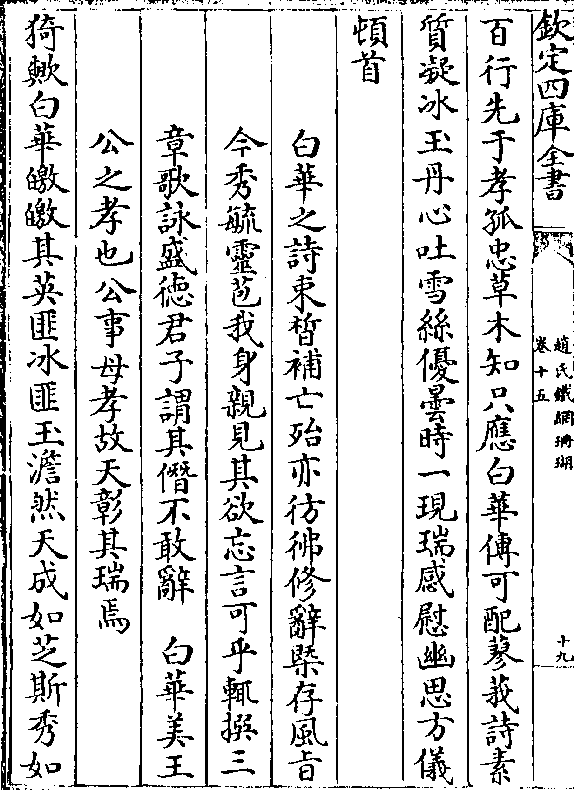 欽定四庫全書
趙氏鐵網珊瑚
卷十五
十九
百行先于孝孤忠草木知只應白華傳可配蓼莪詩素
質凝冰玉丹心吐雪絲優曇時一現瑞感慰幽思方儀
頓首
白華之詩束晳補亡殆亦彷彿修辭槩存風旨
今秀毓靈芭我身親見其欲忘言可乎輒撰三
章歌詠盛徳君子謂其僭不敢辭　白華美王
公之孝也公事母孝故天彰其瑞焉
猗歟白華皦皦其英匪冰匪玉澹然天成如芝斯秀如